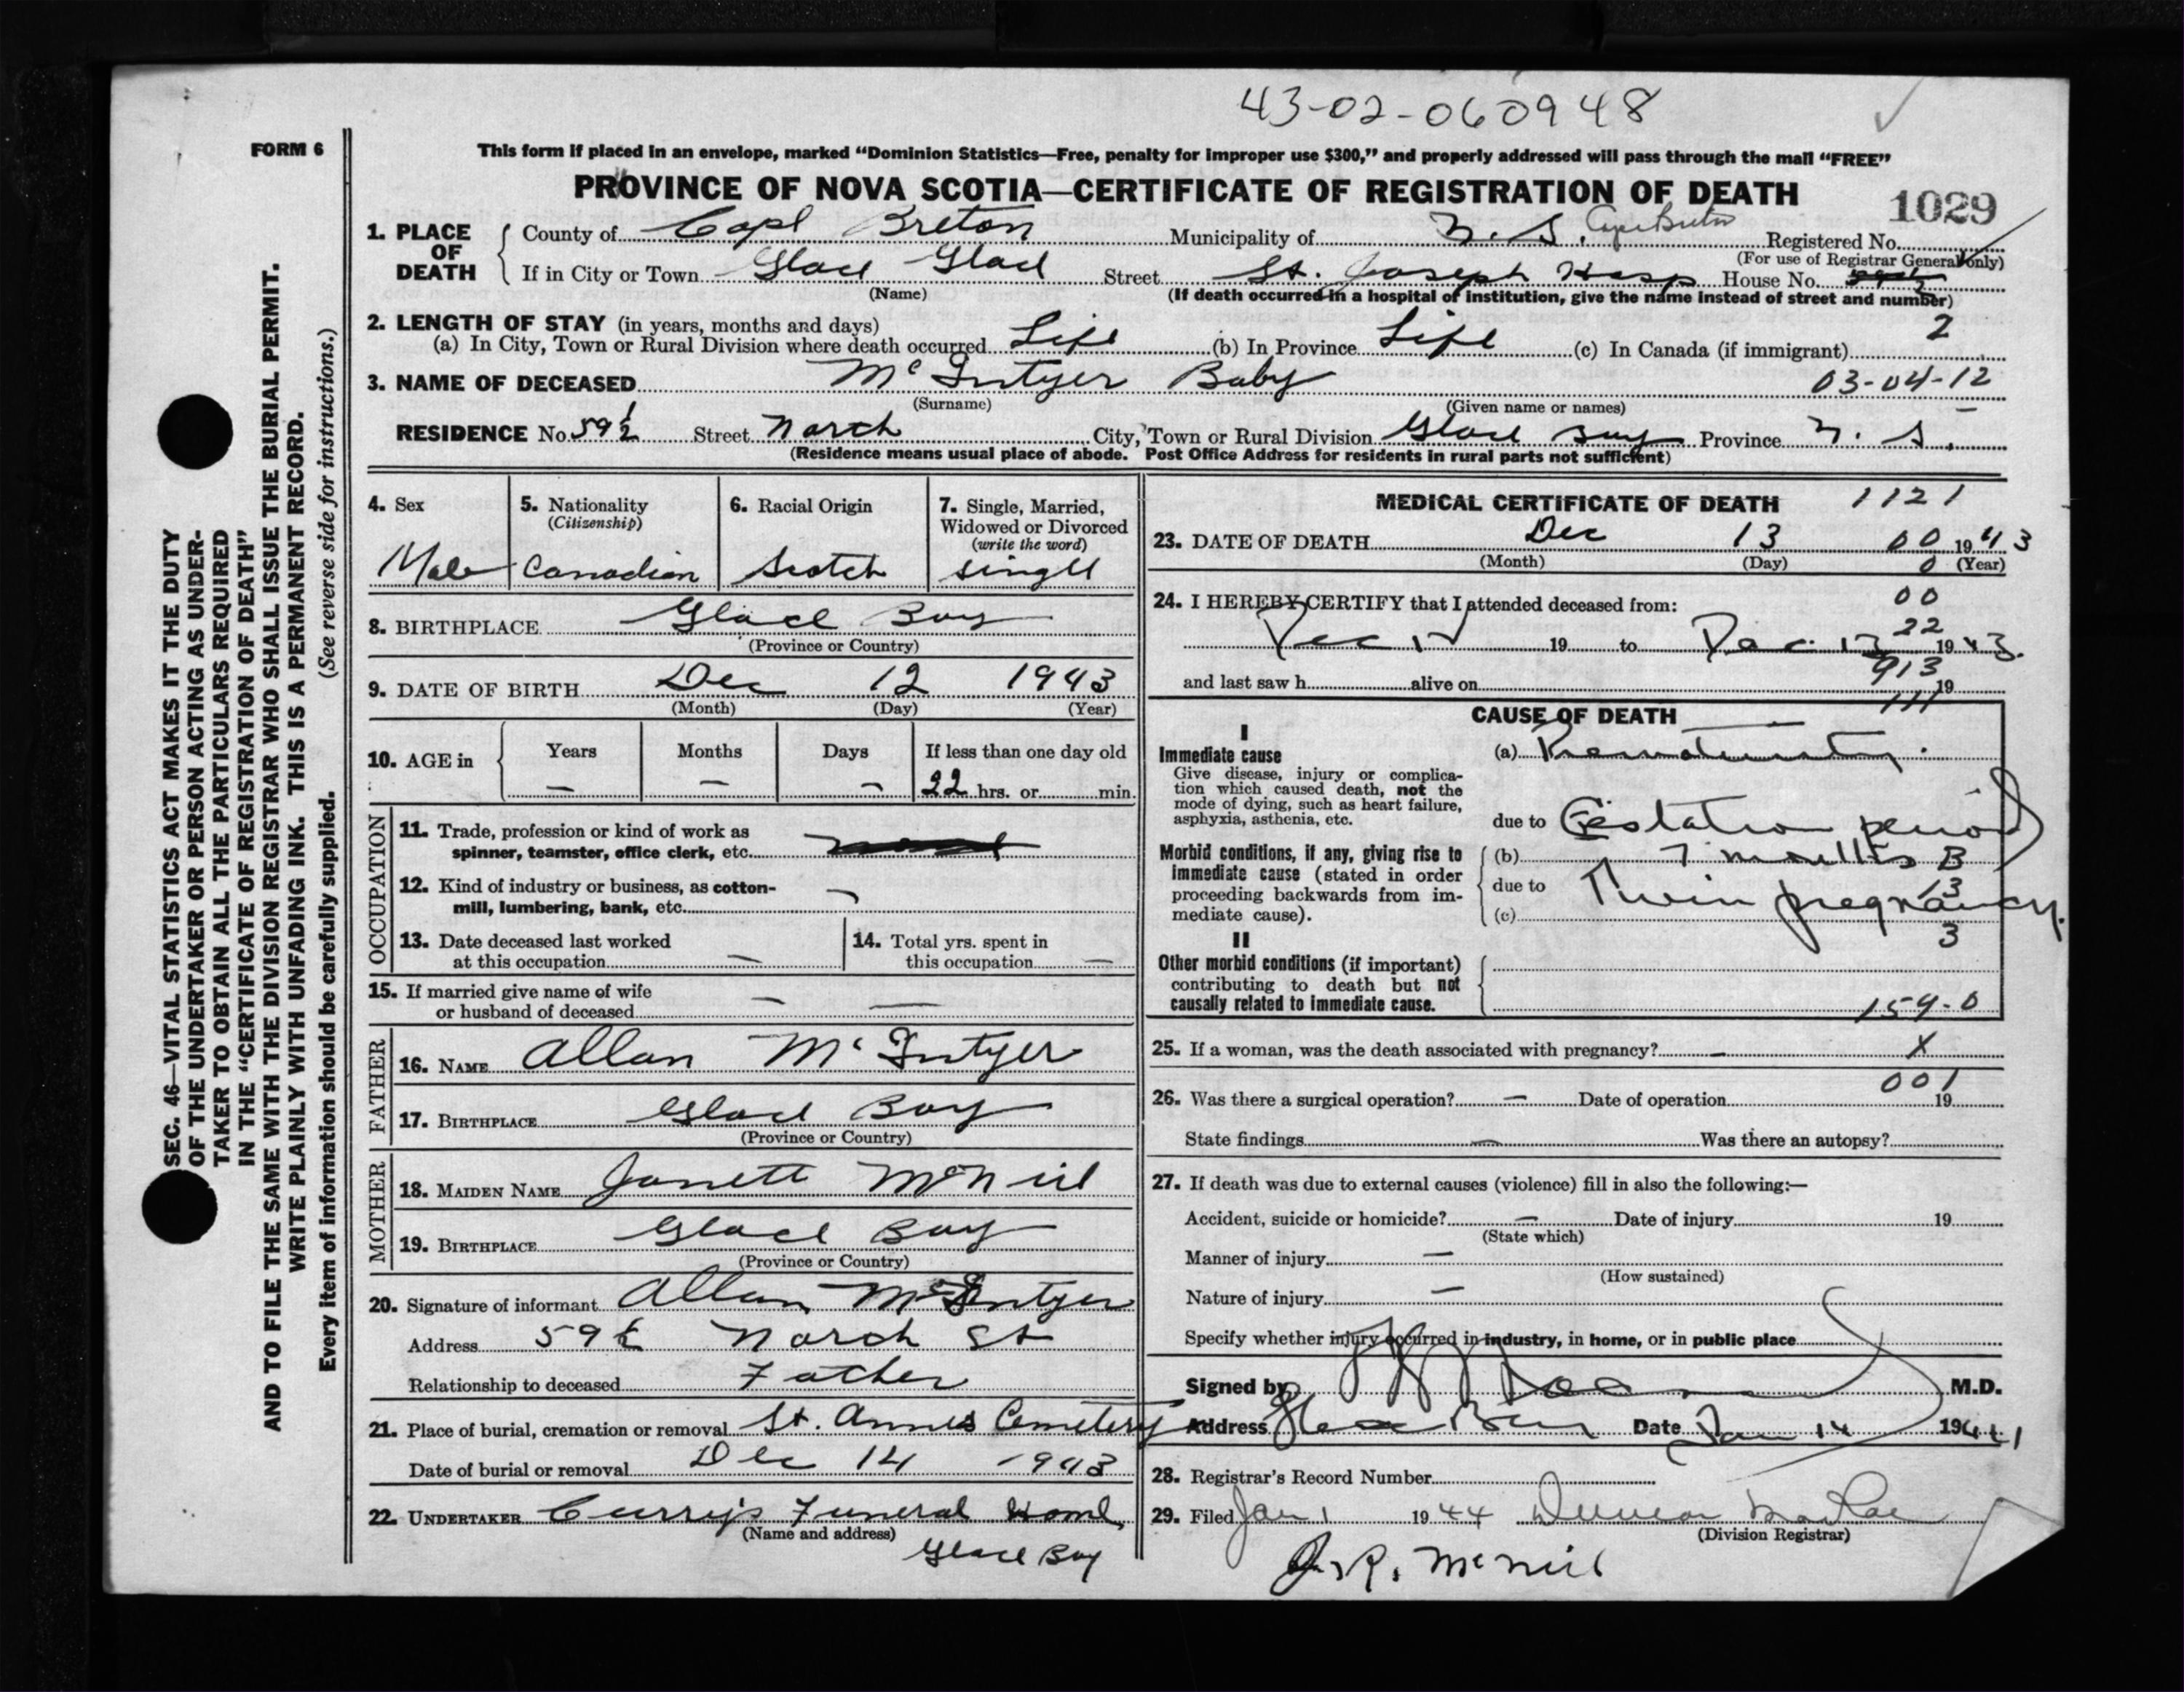 43-02-060948
FORM 6
This form if placed in an envelope, marked "Dominion Statistics—Free, penalty for improper use $300," and properly addressed will pass through the mail "FREE"
PROVINCE OF NOVA SCOTIA—CERTIFICATE OF REGISTRATION OF DEATH
1029
1. PLACE OF DEATH { County of Cape Breton Municipality of N. S. Cape Breton Registered No.
(For use of Registrar General only)
If in City or Town Glace Glace Street St. Joseph Hosp House No.
(Name) (If death occurred in a hospital of institution, give the name instead of street and number)
2. LENGTH OF STAY (in years, months and days) 2
(a) In City, Town or Rural Division where death occurred Life (b) In Province Life (c) In Canada (if immigrant)
3. NAME OF DECEASED McIntyer Baby 03-04-12
(Surname) (Given name or names)
RESIDENCE No. 59½ Street March City, Town or Rural Division Glace Bay Province N. S.
(Residence means usual place of abode. Post Office Address for residents in rural parts not sufficient)
4. Sex Male
5. Nationality (Citizenship) Canadian
6. Racial Origin Scotch
7. Single, Married, Widowed or Divorced (write the word) Single
8. BIRTHPLACE Glace Bay
(Province or Country)
9. DATE OF BIRTH Dec 12 1943
(Month) (Day) (Year)
10. AGE in { Years — Months — Days — If less than one day old 22 hrs. or min.
OCCUPATION
11. Trade, profession or kind of work as
spinner, teamster, office clerk, etc.
12. Kind of industry or business, as cotton-
mill, lumbering, bank, etc. —
13. Date deceased last worked
at this occupation —
14. Total yrs. spent in
this occupation —
15. If married give name of wife
or husband of deceased — —
FATHER
16. NAME Allan McIntyer
17. BIRTHPLACE Glace Bay
(Province or Country)
MOTHER
18. MAIDEN NAME Janett McNeil
19. BIRTHPLACE Glace Bay
(Province or Country)
20. Signature of informant Allan McIntyer
Address 59½ March St
Relationship to deceased Father
21. Place of burial, cremation or removal St. Annes Cemetery
Date of burial or removal Dec 14 1943
22. UNDERTAKER Curry's Funeral Home,
(Name and address)
Glace Bay
MEDICAL CERTIFICATE OF DEATH 1121
23. DATE OF DEATH Dec 13 00 1943
(Month) (Day) 0 (Year)
24. I HEREBY CERTIFY that I attended deceased from: 00
22
Dec 12 19 to Dec. 13 1943.
913
and last saw h alive on 19
111
CAUSE OF DEATH
I
Immediate cause
Give disease, injury or complica-
tion which caused death, not the
mode of dying, such as heart failure,
asphyxia, asthenia, etc.
(a) Prematurity.
due to Gestation period
Morbid conditions, if any, giving rise to
immediate cause (stated in order
proceeding backwards from im-
mediate cause).
(b) 7 months B
due to Twin pregnancy.
13
(c)
3
II
Other morbid conditions (if important)
contributing to death but not
causally related to immediate cause.
159-0
25. If a woman, was the death associated with pregnancy? — X
001
26. Was there a surgical operation? — Date of operation 19
State findings — Was there an autopsy?
27. If death was due to external causes (violence) fill in also the following:—
Accident, suicide or homicide? — Date of injury 19
(State which)
Manner of injury —
(How sustained)
Nature of injury —
Specify whether injury occurred in industry, in home, or in public place
Signed by M.D.
Address Glace Bay Date Jan 14 1944
28. Registrar's Record Number
29. Filed Jan 1 1944 Duncan MacRae
(Division Registrar)
J. R. McNeil
SEC. 46—VITAL STATISTICS ACT MAKES IT THE DUTY
OF THE UNDERTAKER OR PERSON ACTING AS UNDER-
TAKER TO OBTAIN ALL THE PARTICULARS REQUIRED
IN THE "CERTIFICATE OF REGISTRATION OF DEATH"
AND TO FILE THE SAME WITH THE DIVISION REGISTRAR WHO SHALL ISSUE THE BURIAL PERMIT.
WRITE PLAINLY WITH UNFADING INK. THIS IS A PERMANENT RECORD.
Every item of information should be carefully supplied. (See reverse side for instructions.)